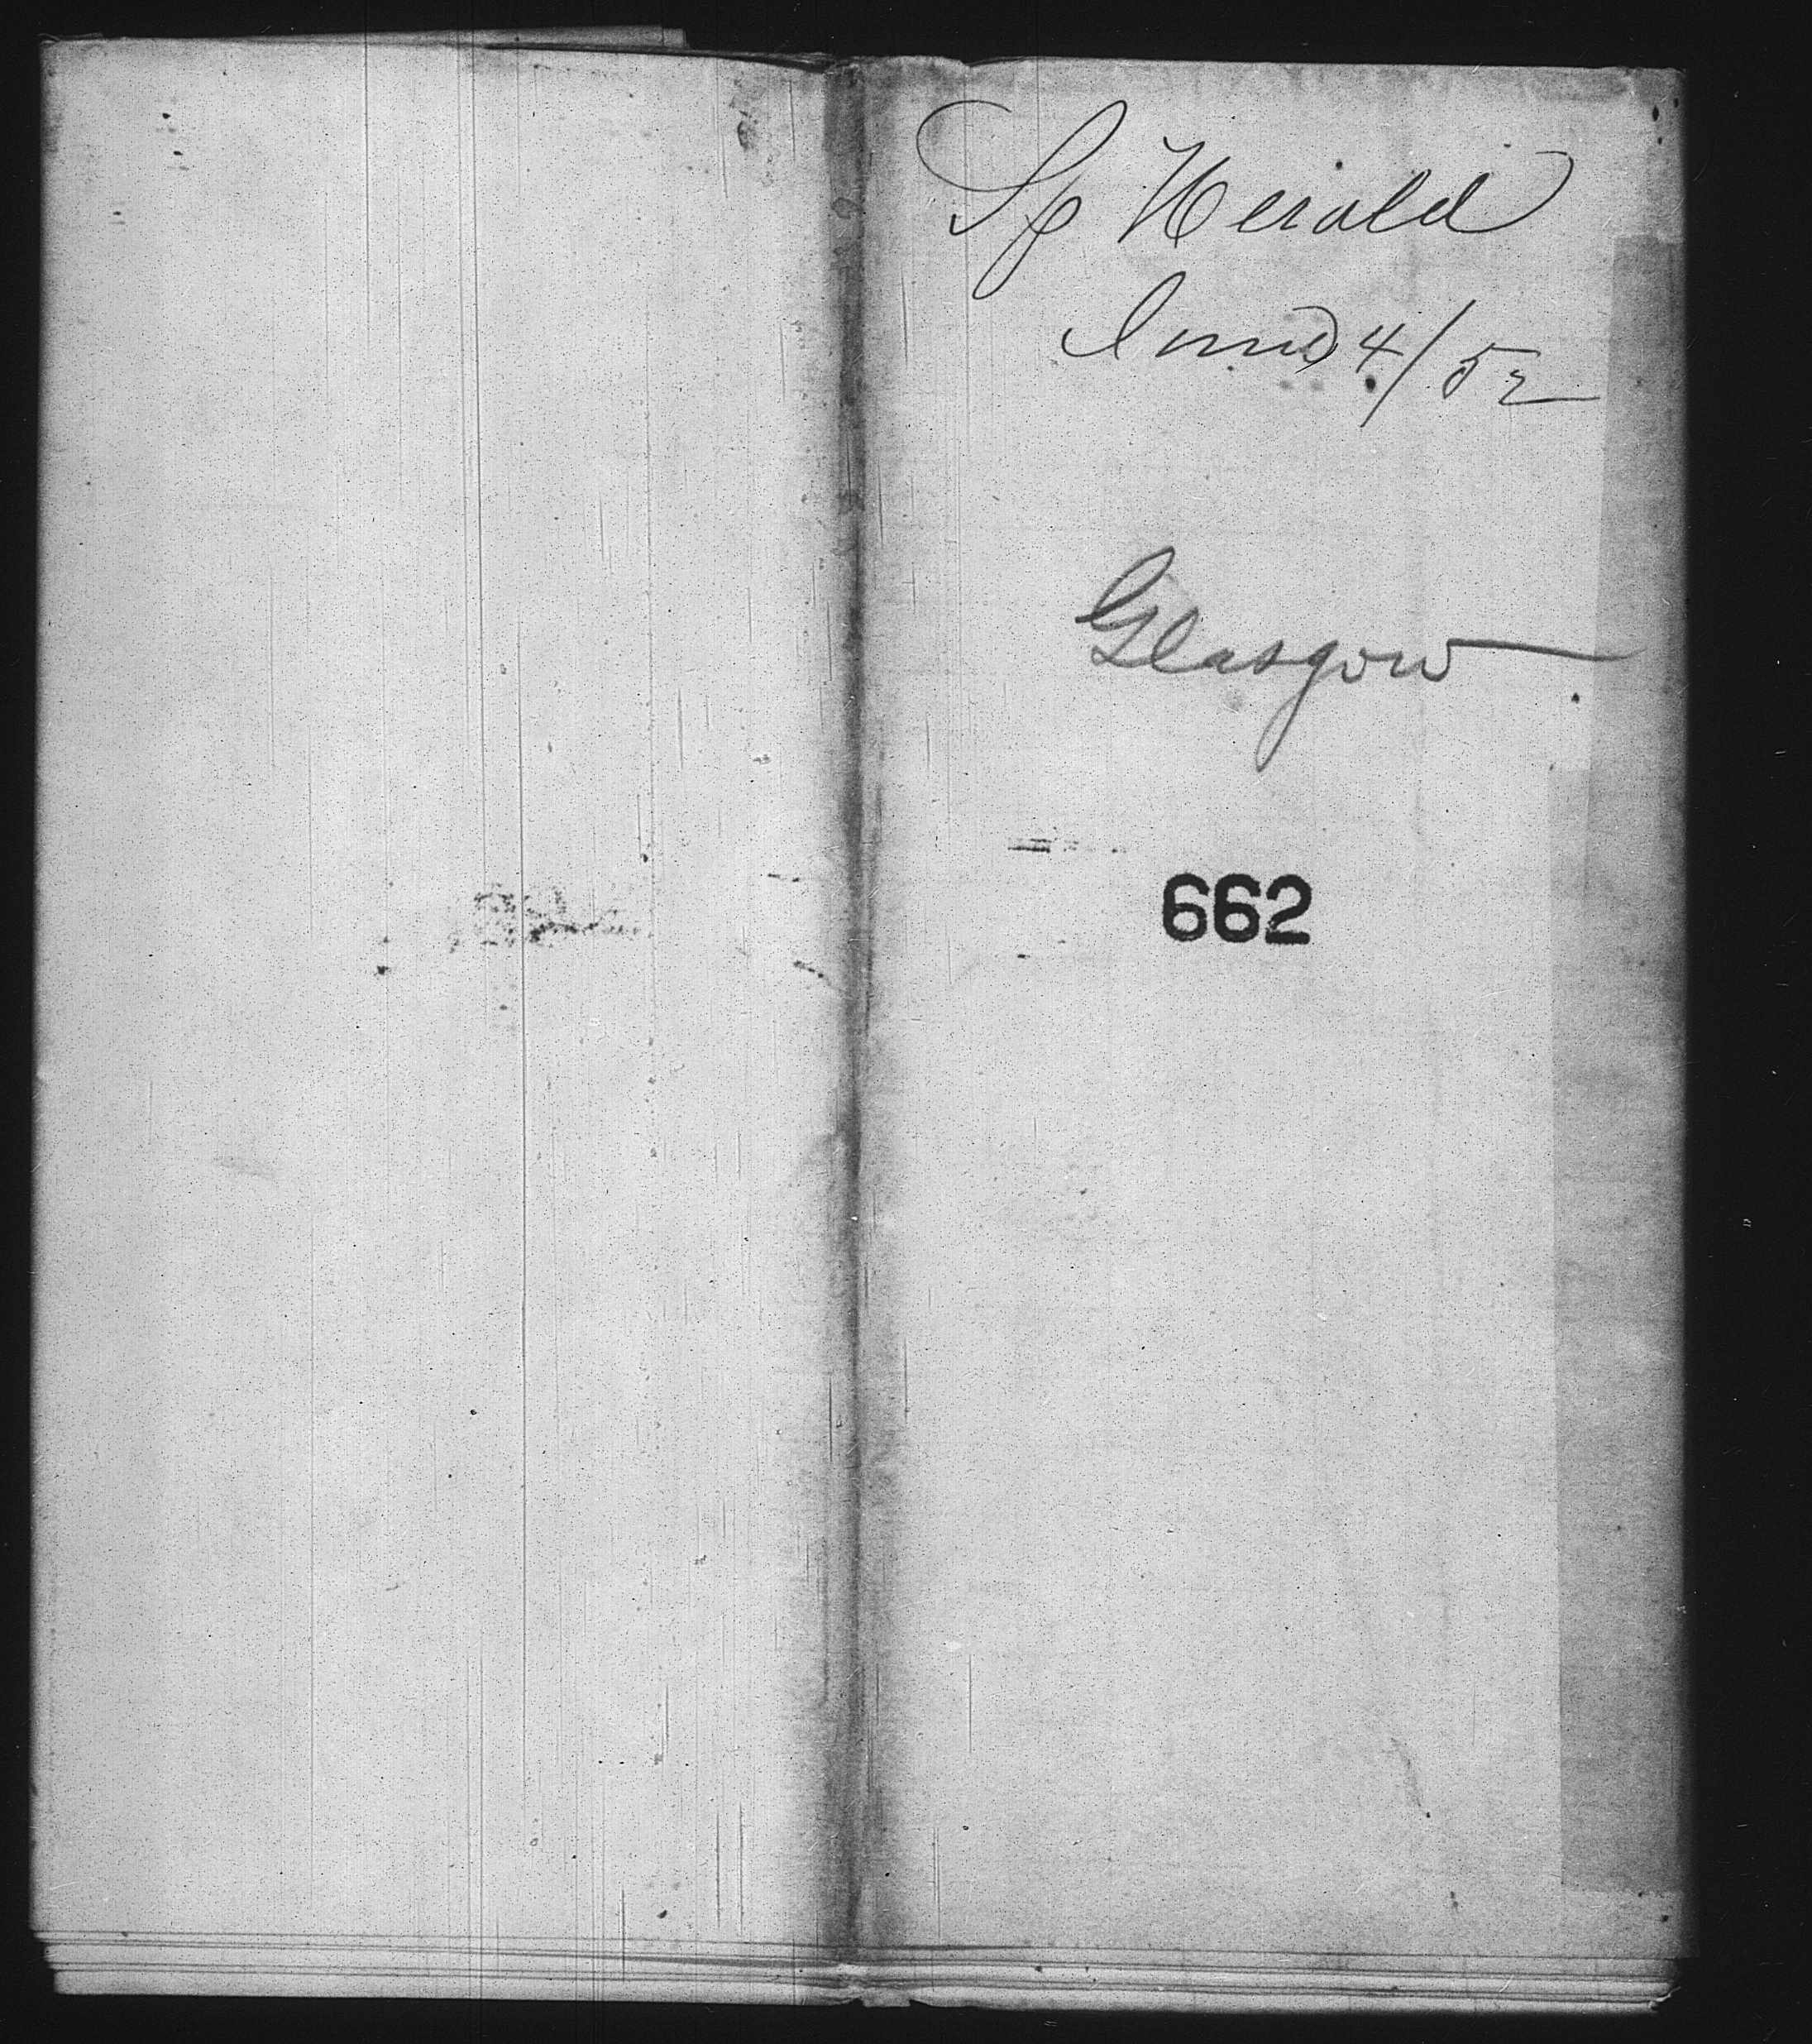 Sp Herald
June 4/52
Glasgow
662